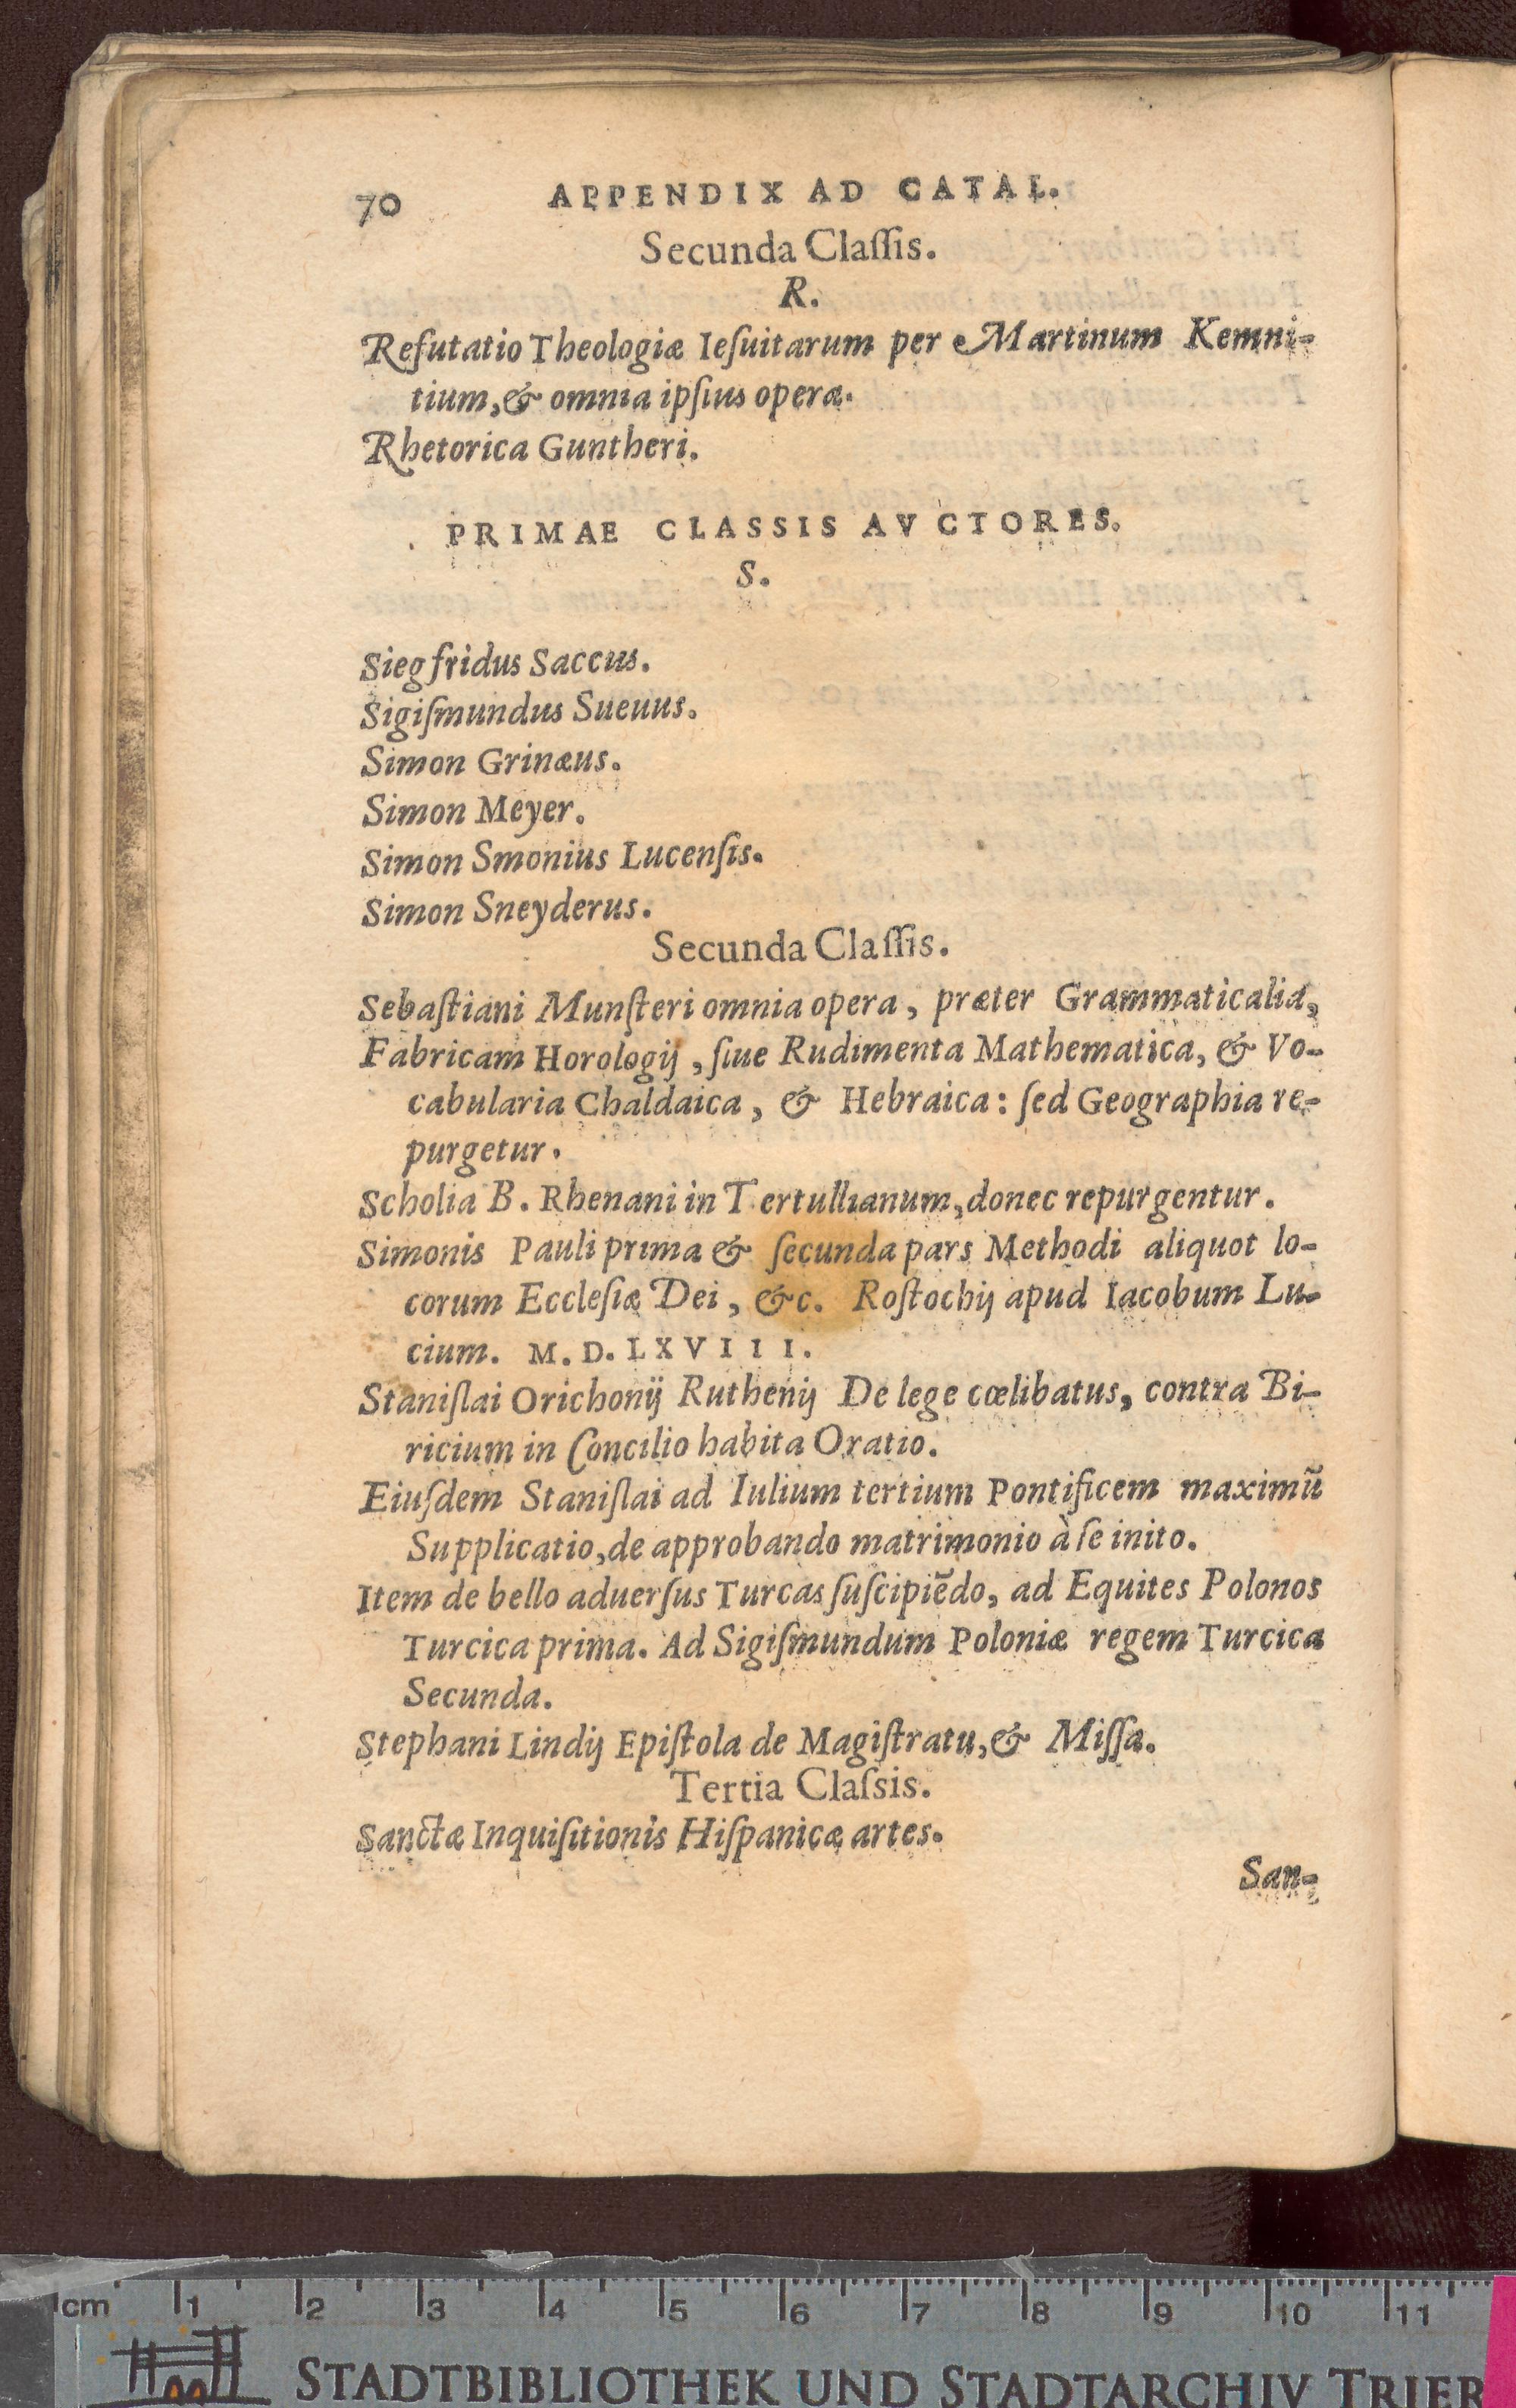 70 APPENDIX AD CATAL.
Secunda Claſſis.
R.
Refutatio Theologiæ Ieſuitarum per Martinum Kemni-
tium, & omnia ipſius opera.
Rhetorica Guntheri.
PRIMAE CLASSIS AVCTORES.
S.
Siegfridus Saccus.
Sigiſmundus Sueuus.
Simon Grinæus.
Simon Meyer.
Simon Smonius Lucenſis.
Simon Sneyderus.
Secunda Claſſis.
Sebaſtiani Munſteri omnia opera, præter Grammaticalia,
Fabricam Horologij, ſiue Rudimenta Mathematica, & Vo-
cabularia Chaldaica, & Hebraica: ſed Geographia re-
purgetur.
Scholia B. Rhenani in Tertullianum, donec repurgentur.
Simonis Pauli prima & ſecunda pars Methodi aliquot lo-
corum Eccleſiæ Dei, &c. Roſtochij apud Iacobum Lu-
cium. M. D. LXVIII.
Staniſlai Orichonij Ruthenij De lege cœlibatus, contra Bi-
ricium in Concilio habita Oratio.
Eiuſdem Staniſlai ad Iulium tertium Pontificem maximū
Supplicatio, de approbando matrimonio à ſe inito.
Item de bello aduerſus Turcas ſuſcipiēdo, ad Equites Polonos
Turcica prima. Ad Sigiſmundum Poloniæ regem Turcica
Secunda.
Stephani Lindij Epiſtola de Magiſtratu, & Miſſa.
Tertia Claſsis.
Sanctæ Inquiſitionis Hiſpanicæ artes.
San-
cm 1 2 3 4 5 6 7 8 9 10 11
STADTBIBLIOTHEK UND STADTARCHIV TRIER